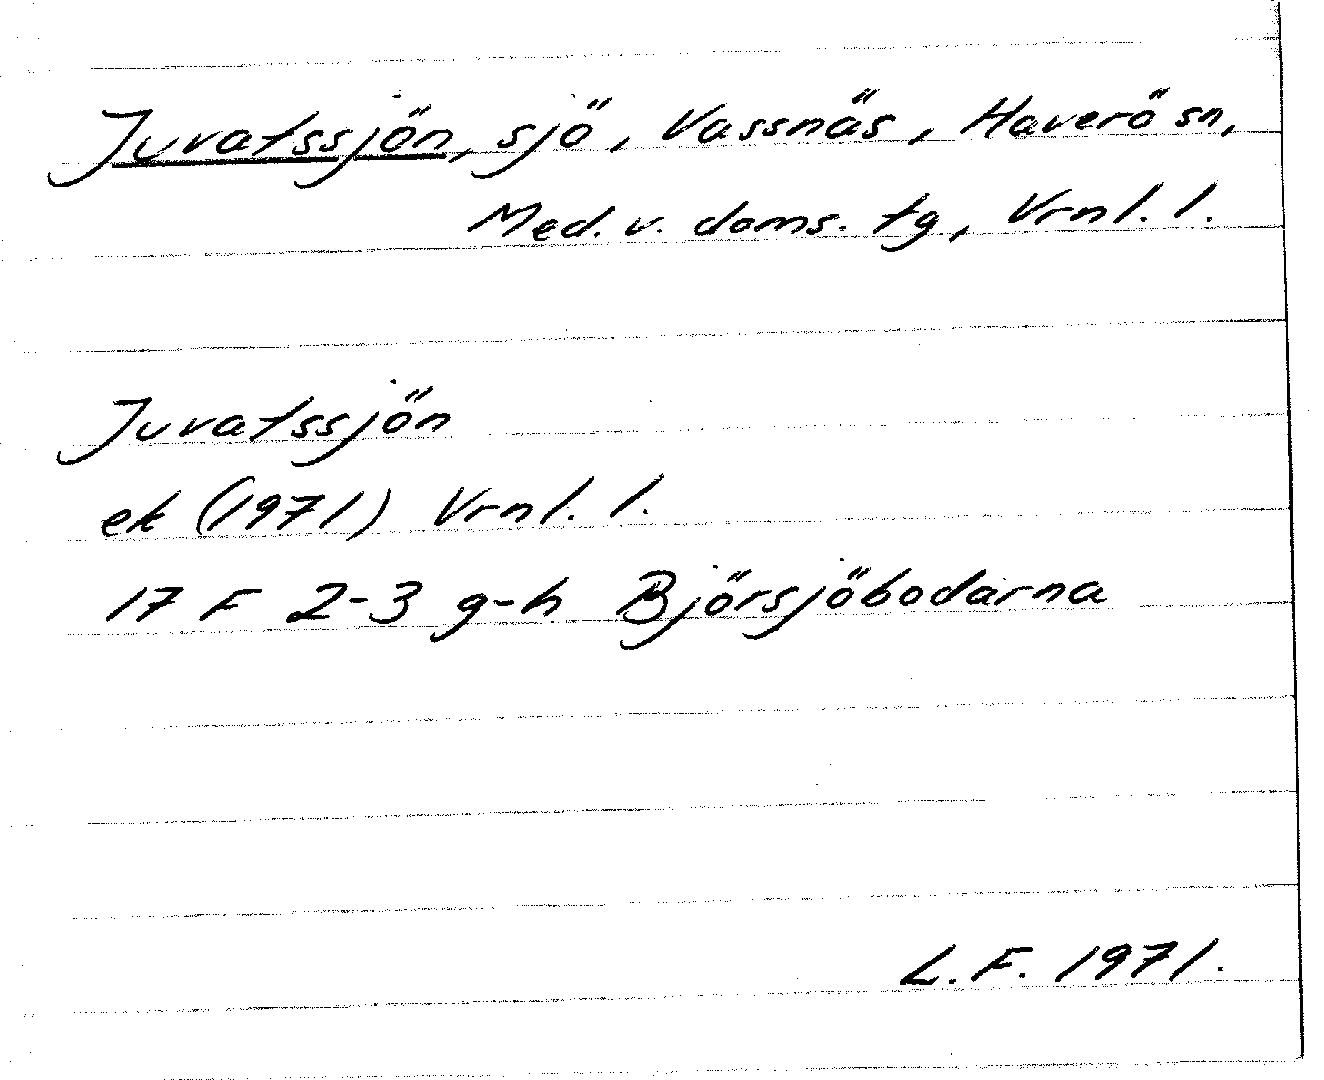 Juvatssjön, sjö, Vassnäs, Haverö sn,
Med. v. doms. tg, Vrnl. l.
Juvatssjön
ek (1971) Vrnl. l.
17 F 2-3 g-h Björsjöbodarna
L.F. 1971.